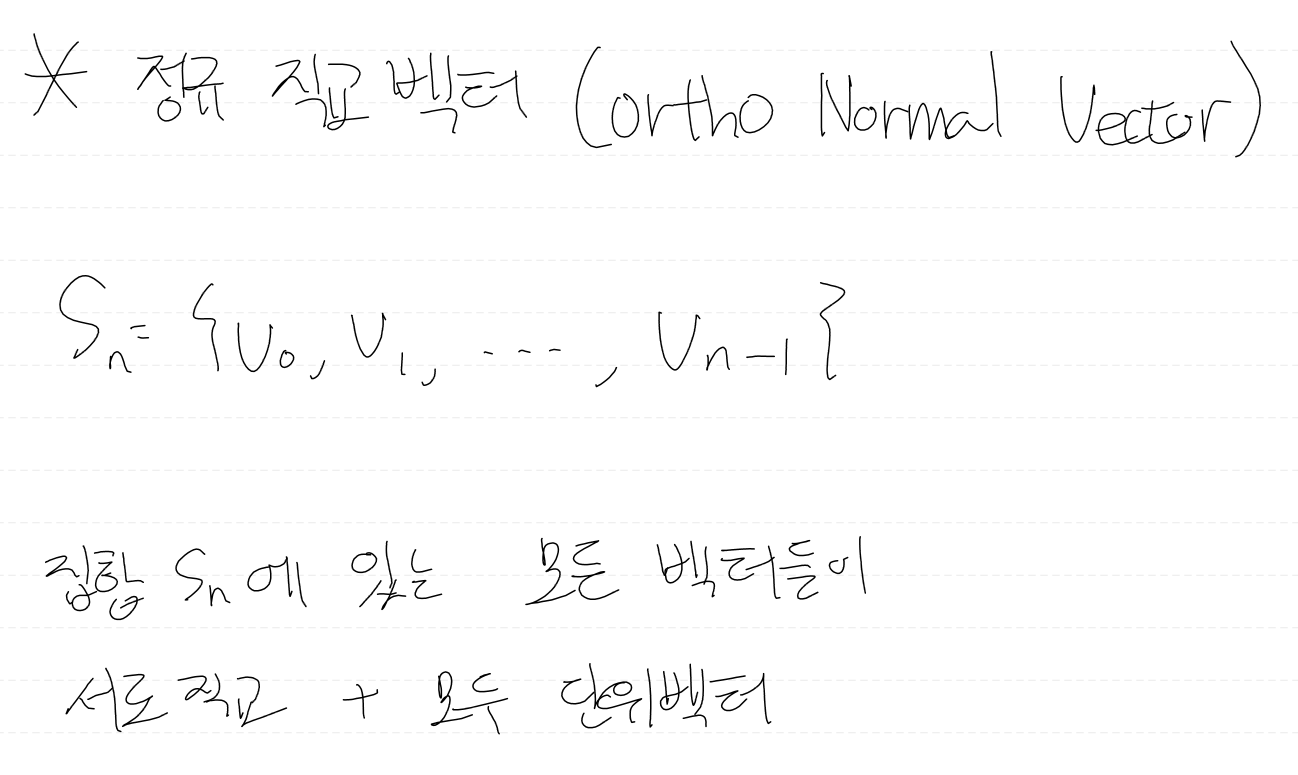 * 정규 직교 벡터 (ortho Normal Vector)
Sn = {v0, v1, ---, vn-1}
집합 Sn에 있는 모든 벡터들이
서로 직교 + 모두 단위벡터